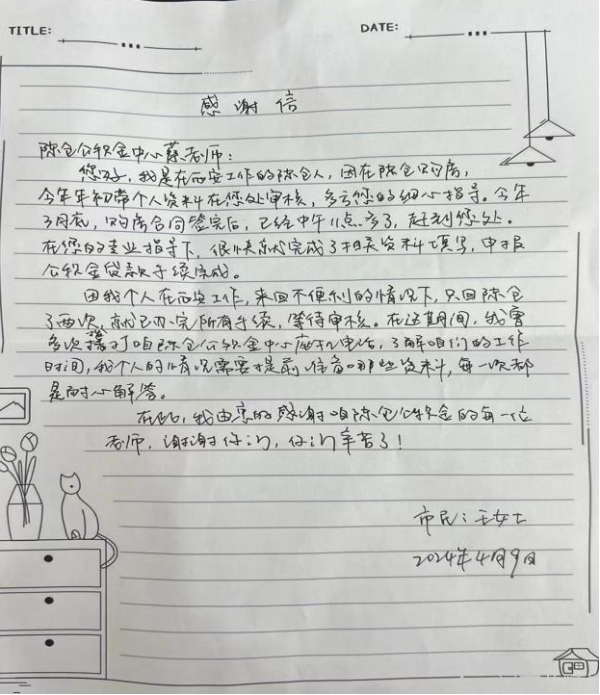 TITLE:
DATE:
感谢信
陈仓公积金中心蔡老师:
您好,我是在西安工作的陈仓人,因在陈仓购房,
今年年初带个人资料在您处审核,多亏您的细心指导。今年
3月底,购房合同签完后,已经中午11点多了,赶到您处。
在您的专业指导下,很快就完成了相关资料填写,申报
公积金贷款手续完成。
因我个人在西安工作,来回不便利的情况下,只回陈仓
了两次,就已办完所有手续,等待审核。在这期间,我曾
多次拨打咱陈仓公积金中心座机电话,了解咱们的工作
时间,我个人的情况需要提前准备哪些资料,每一次都
是耐心解答。
在此,我由衷的感谢咱陈仓公积金的每一位
老师,谢谢你们,你们辛苦了!
市民:王女士
2024年4月9日